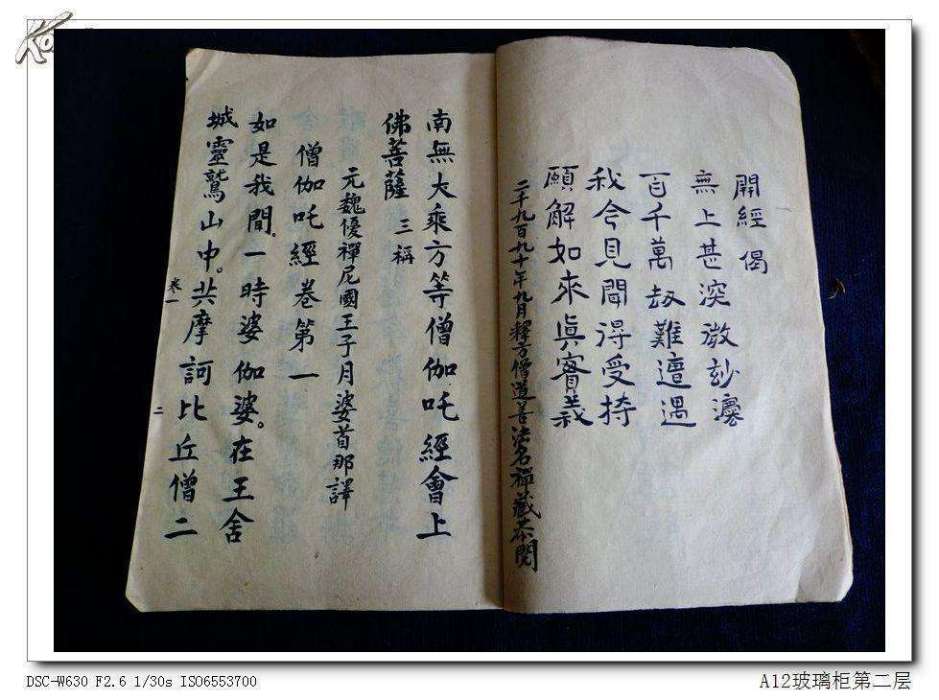 開經偈
無上甚深微妙法
百千萬劫難遭遇
我今見聞得受持
願解如來真實義
二千九百九十年九月釋方僧道善法名禪藏茶閱
南無大乘方等僧伽吒經會上
佛菩薩 三稱
元魏優禪尼國王子月婆首那譯
僧伽吒經卷第一
如是我聞。一時婆伽婆。在王舍
城靈鷲山中。共摩訶比丘僧二
卷一
二
DSC-W630 F2.6 1/30s ISO6553700
A12玻璃柜第二层